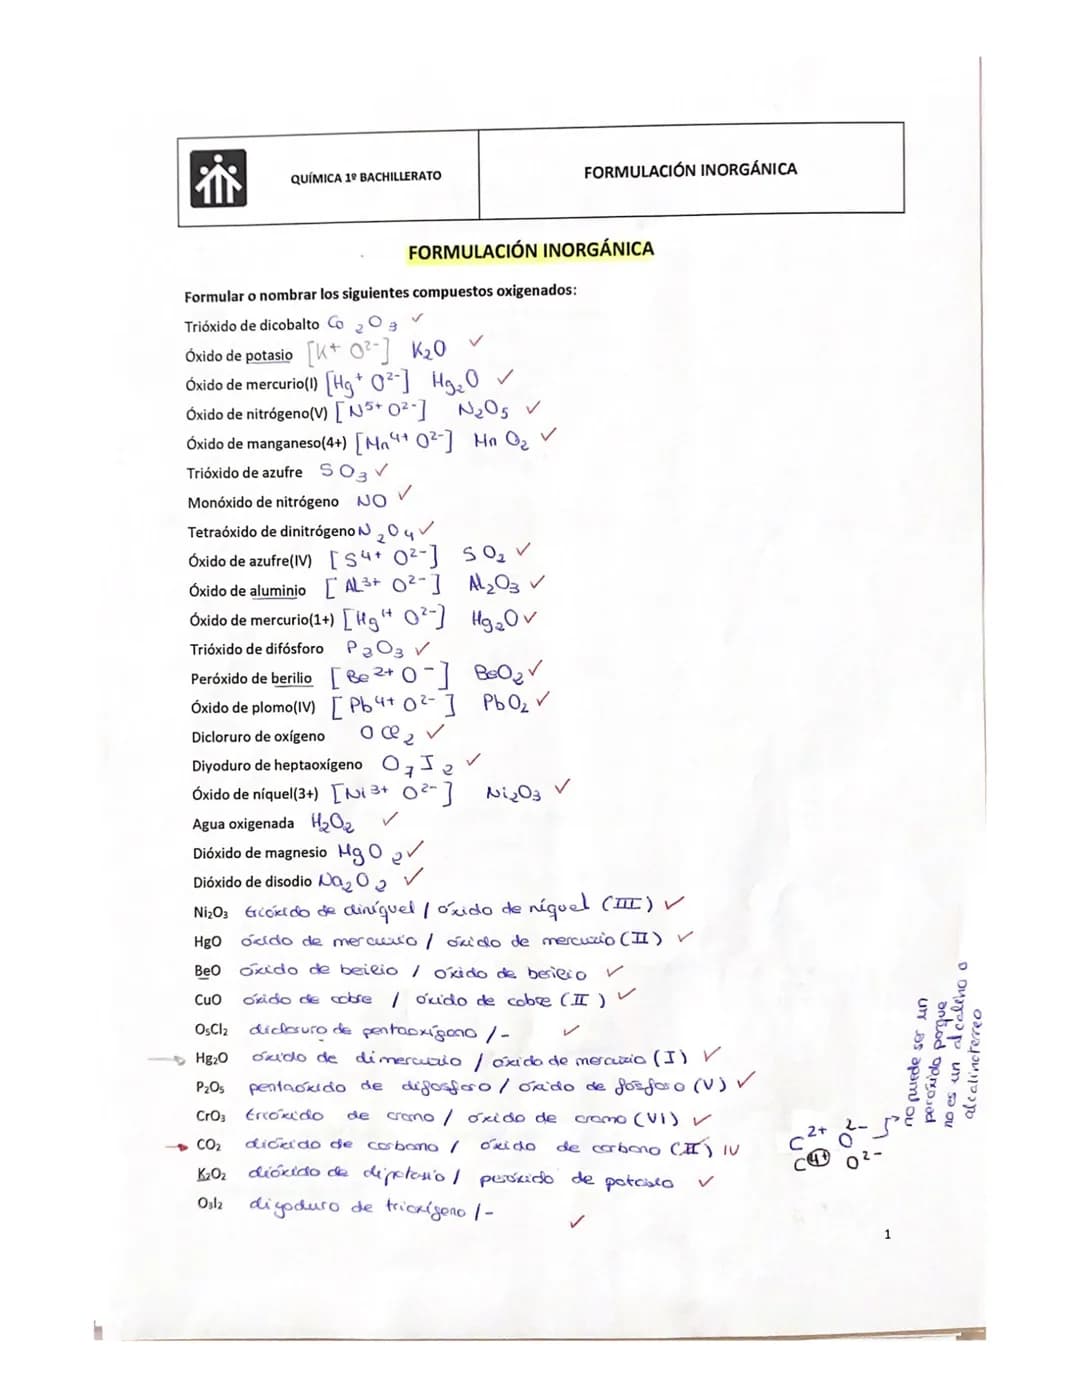 QUÍMICA 1º BACHILLERATO
FORMULACIÓN INORGÁNICA
FORMULACIÓN INORGÁNICA
Formular o nombrar los siguientes compuestos oxigenados:
Trióxido de dicobalto Co₂O₃ ✓
Óxido de potasio [K⁺ O²⁻] K₂O ✓
Óxido de mercurio(I) [Hg⁺ O²⁻] Hg₂O ✓
Óxido de nitrógeno(V) [N⁵⁺ O²⁻] N₂O₅ ✓
Óxido de manganeso(4+) [Mn⁴⁺ O²⁻] MnO₂ ✓
Trióxido de azufre SO₃ ✓
Monóxido de nitrógeno NO ✓
Tetraóxido de dinitrógeno N₂O₄ ✓
Óxido de azufre(IV) [S⁴⁺ O²⁻] SO₂ ✓
Óxido de aluminio [Al³⁺ O²⁻] Al₂O₃ ✓
Óxido de mercurio(1+) [Hg¹⁺ O²⁻] Hg₂O ✓
Trióxido de difósforo P₂O₃ ✓
Peróxido de berilio [Be²⁺ O⁻] BeO₂ ✓
Óxido de plomo(IV) [Pb⁴⁺ O²⁻] PbO₂ ✓
Dicloruro de oxígeno OCl₂ ✓
Diyoduro de heptaoxígeno O₇I₂ ✓
Óxido de níquel(3+) [Ni³⁺ O²⁻] Ni₂O₃ ✓
Agua oxigenada H₂O₂ ✓
Dióxido de magnesio MgO₂ ✓
Dióxido de disodio Na₂O₂ ✓
Ni₂O₃ trióxido de diníquel / óxido de níquel (III) ✓
HgO óxido de mercurio / óxido de mercurio (II) ✓
BeO óxido de berilio / óxido de berilio ✓
CuO óxido de cobre / óxido de cobre (II) ✓
O₅Cl₂ dicloruro de pentaoxígeno / - ✓
→ Hg₂O óxido de dimercurio / óxido de mercurio (I) ✓
P₂O₅ pentaóxido de difósforo / óxido de fósforo (V) ✓
CrO₃ trióxido de cromo / óxido de cromo (VI) ✓
→ CO₂ dióxido de carbono / óxido de carbono (II) IV
K₂O₂ dióxido de dipotasio / peróxido de potasio ✓
O₃I₂ diyoduro de trioxígeno / - ✓
C²⁺ O²⁻
C⁴⁺ O²⁻
no puede ser un
peróxido porque
no es un alcalino o
alcalinoterreo
1